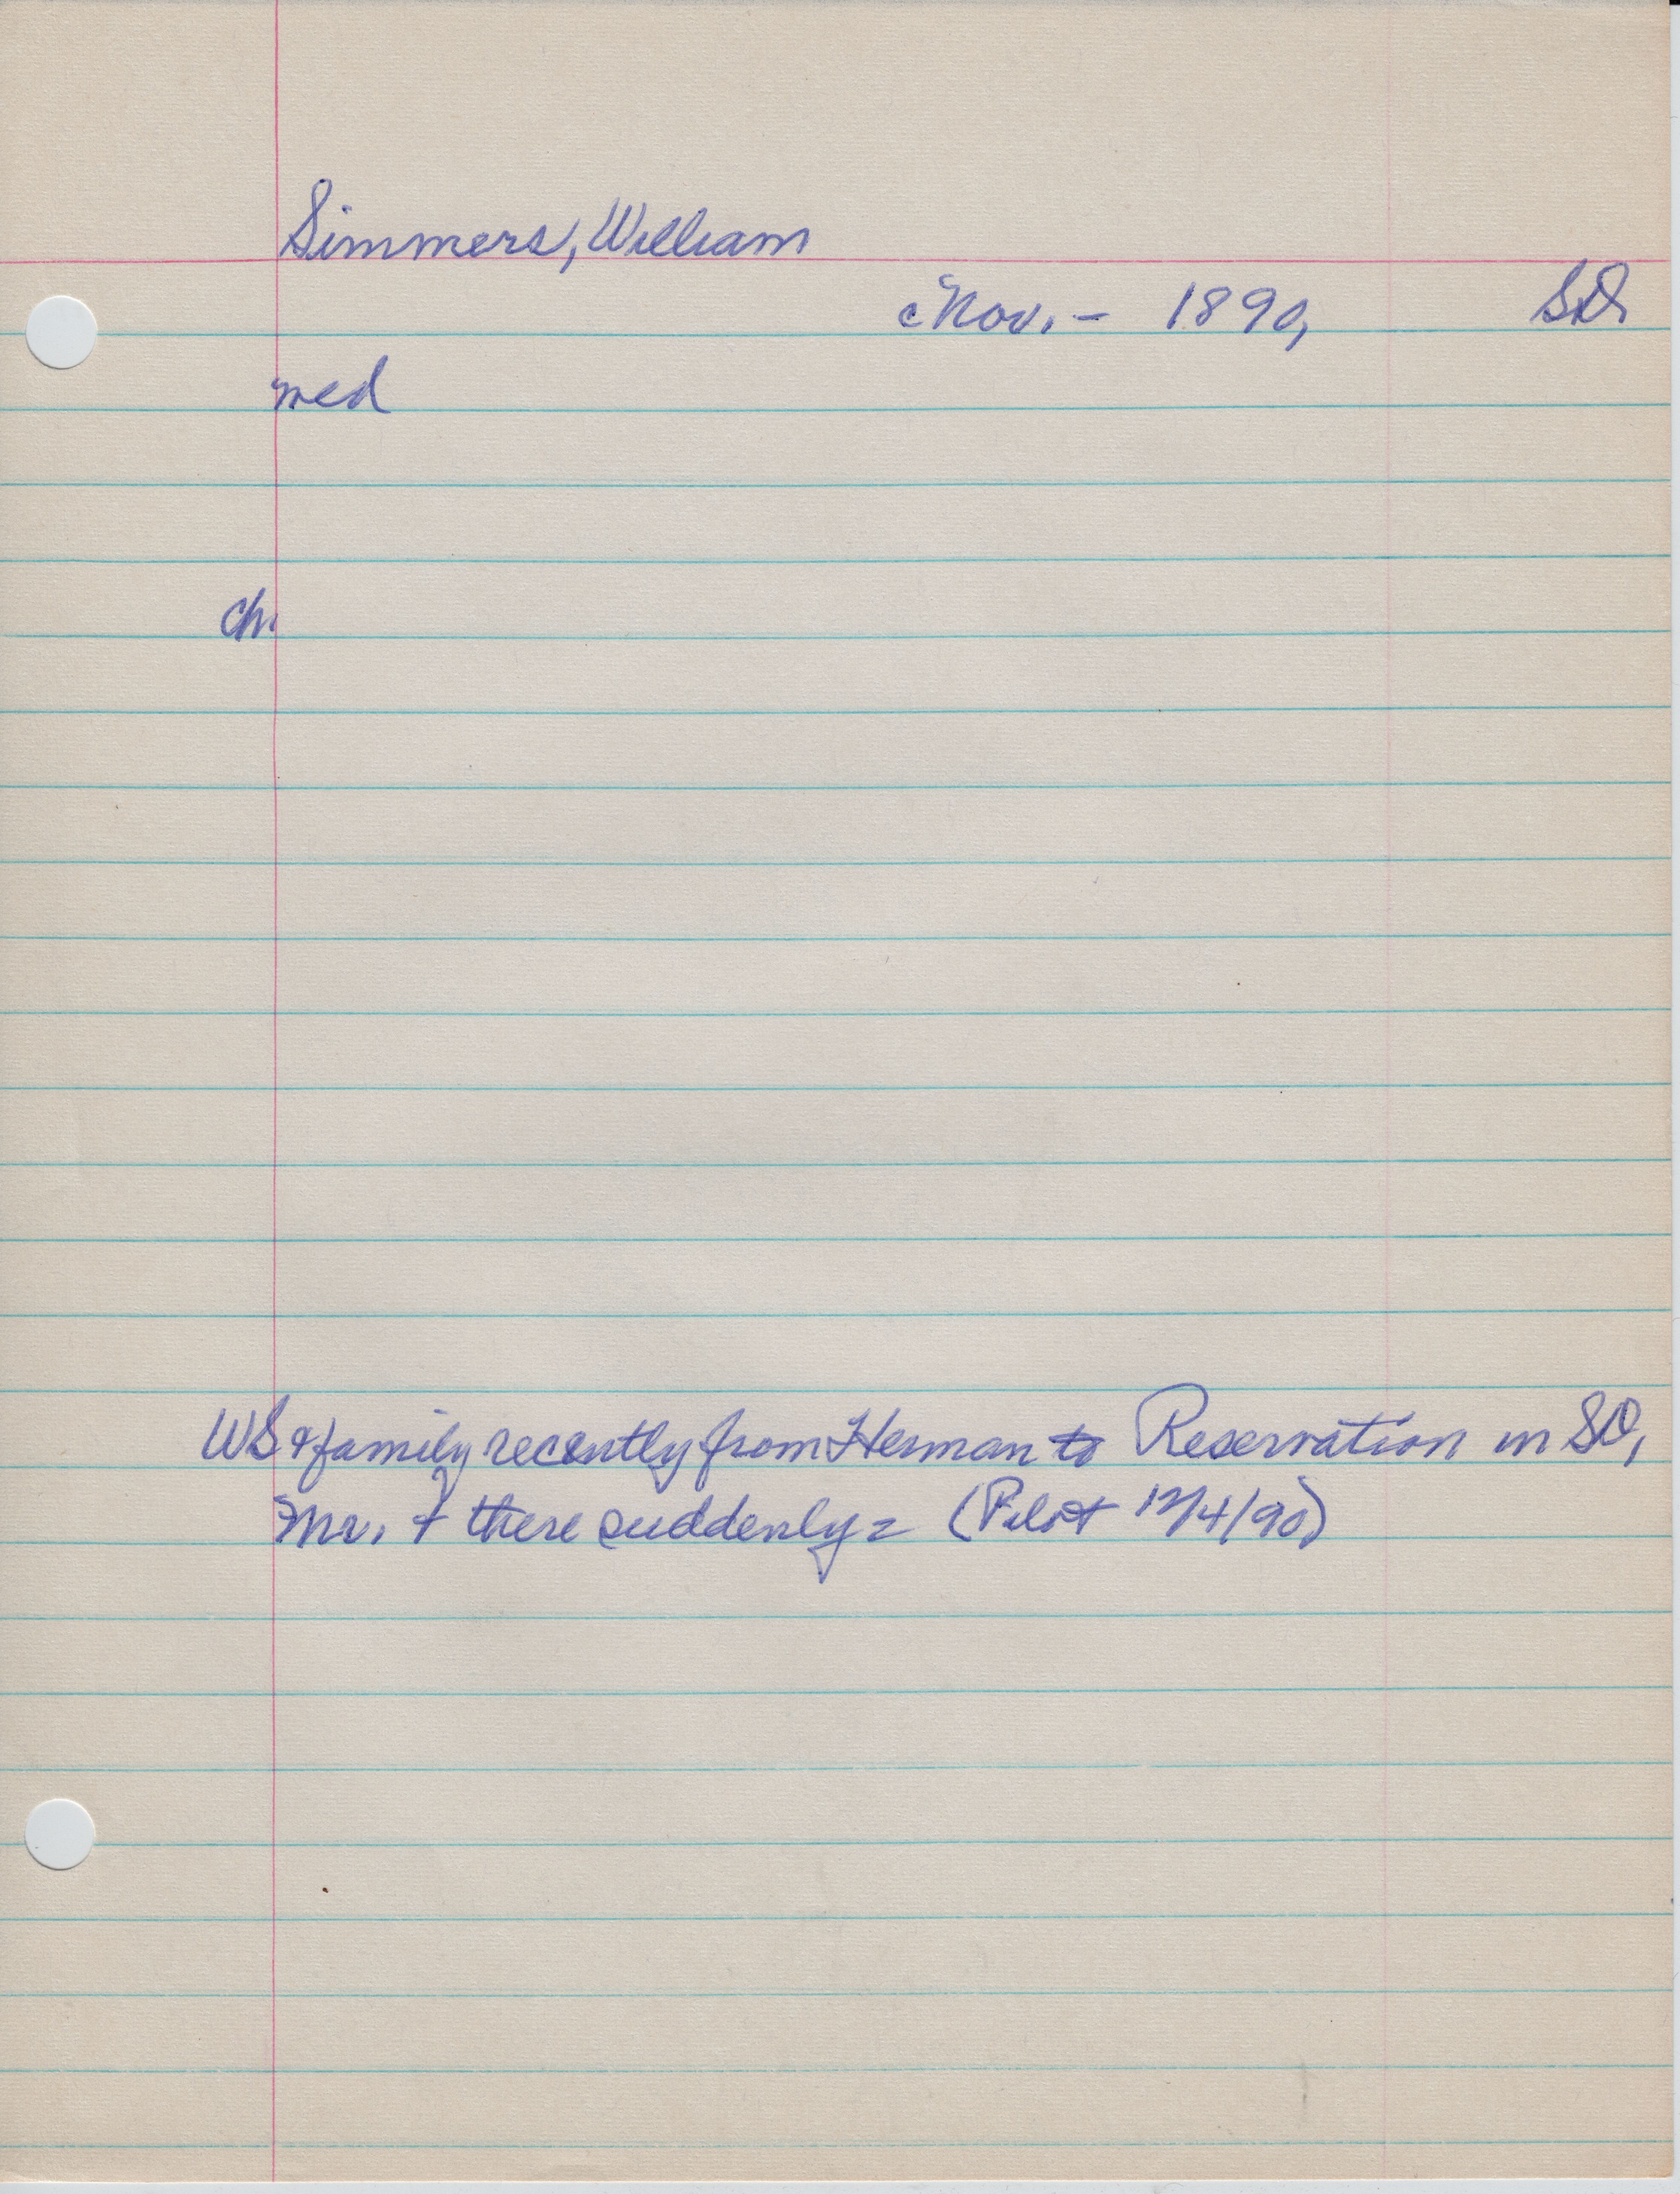 Simmers, William
Nov. - 1890, SD
med
ch.
WS & family recently from Herman to Reservation in SD,
Mr. & there suddenly = (Pilot 12/4/90)